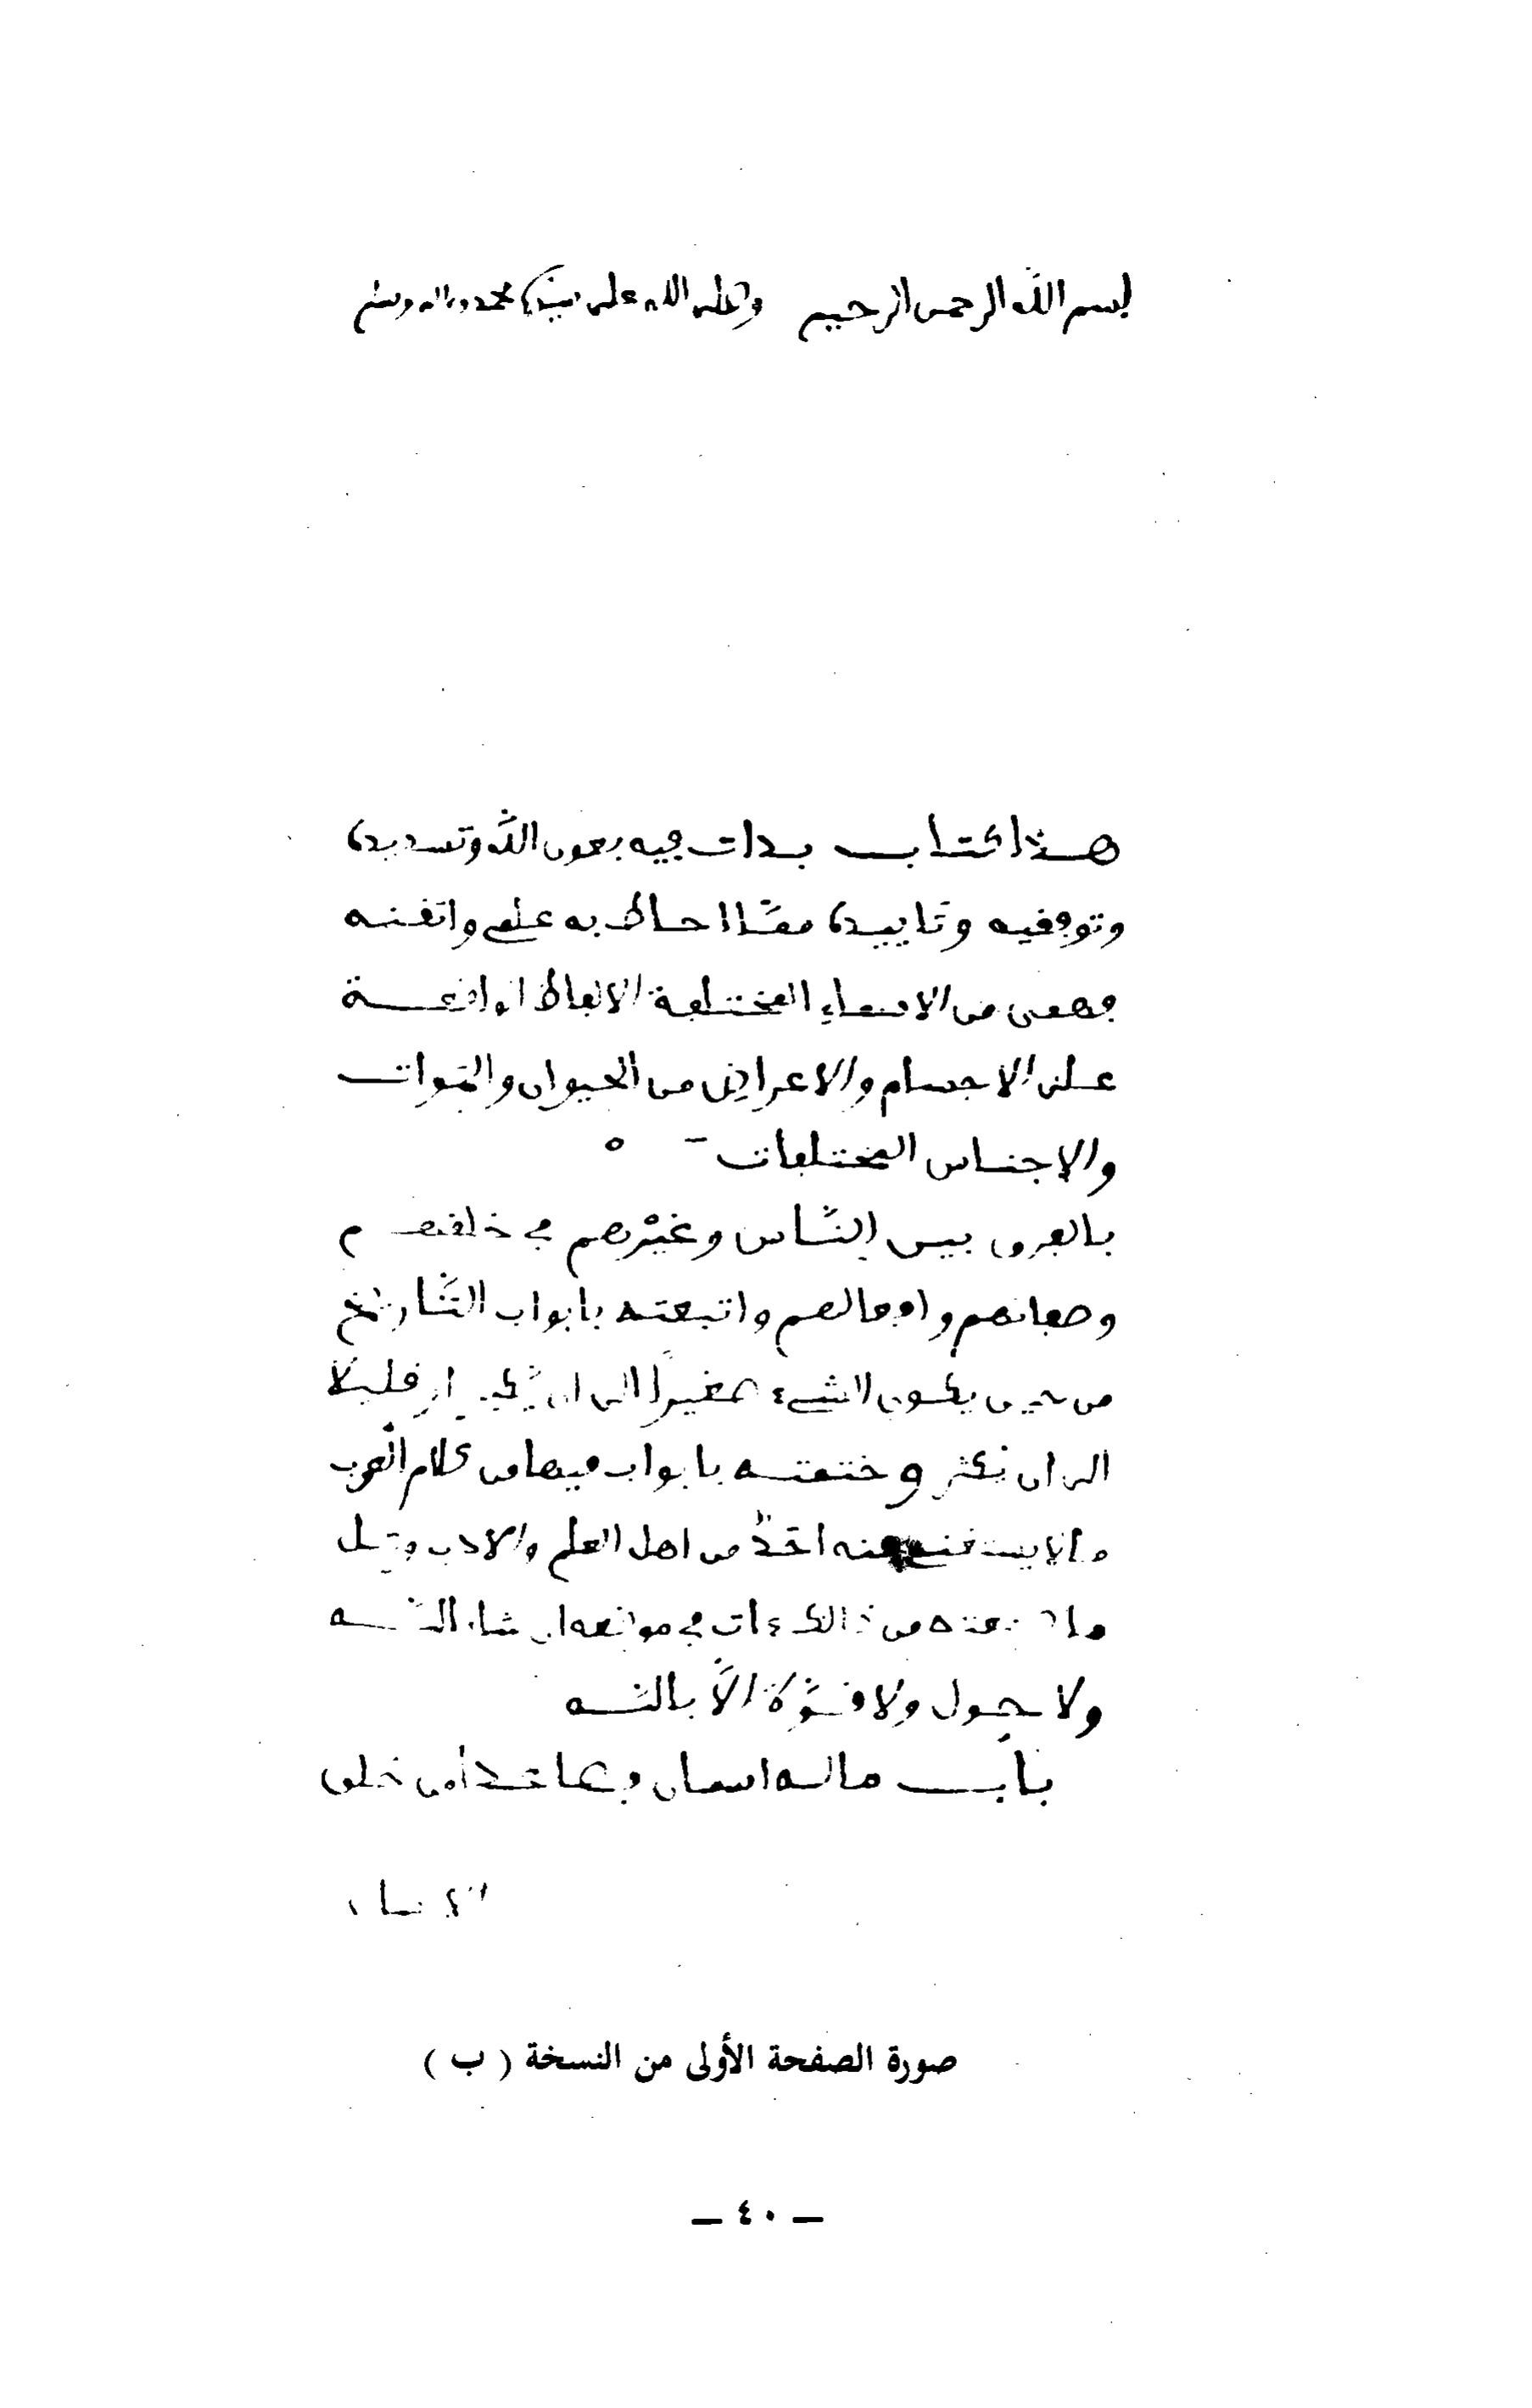 بسم الله الرحمن الرحيم وصلى الله على سيدنا محمد وءاله وسلم
هذا كتاب بدات فيه بعون الله وتسديده
وتوفيفه وتاييده ممّا احاط به علمي واتفنه
فهمي من الاسماء المختلفة الالفاظ الوافعة
على الاجسام والاعراض من الحيوان والموات
والاجناس المختلفات
بالفرق بين النّاس وغيْرهم في خلفهم
وصفاتهم وافعالهم واتبعته بابواب التّاريخ
من حين يكون الشيء صغيرًا الى ان يكبر او فليلا
الى ان يكثر وختمته بابواب فيها من كلام العرب
ما لا يستغني عنه احدٌ من اهل العلم والادب وقبل
ما من ذالك ءات في مواضعه ان شاء اللّه
ولا حول ولا فوّة الاّ باللّه
باب ما له اسمان فصاعدا من خلق
الانسان
صورة الصفحة الأولى من النسخة ( ب )
— ٤٠ —